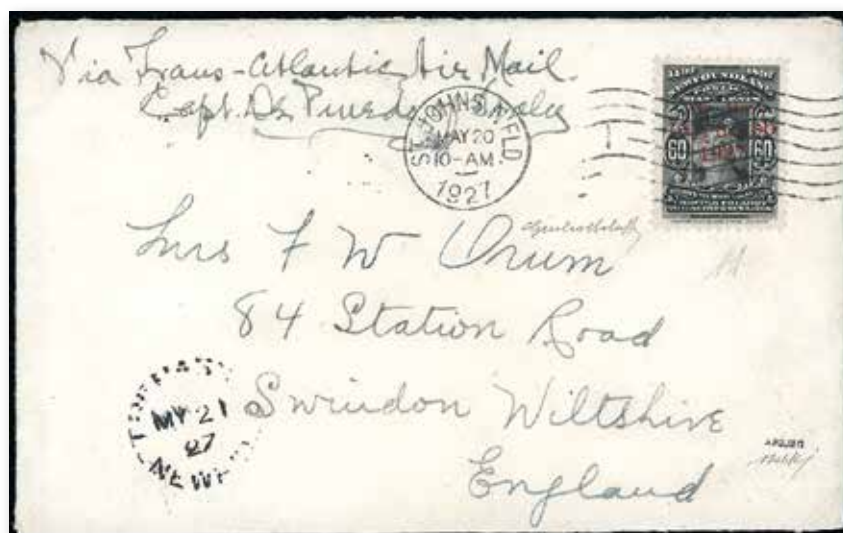 Via Trans-Atlantic Air Mail.
Capt. De Pinedo Italy
ST. JOHN'S NFLD.
MAY 20
10-AM
1927
60 60
Mrs F W Drum
84 Station Road
Swindon Wiltshire
England
MY 21
27
NEWF